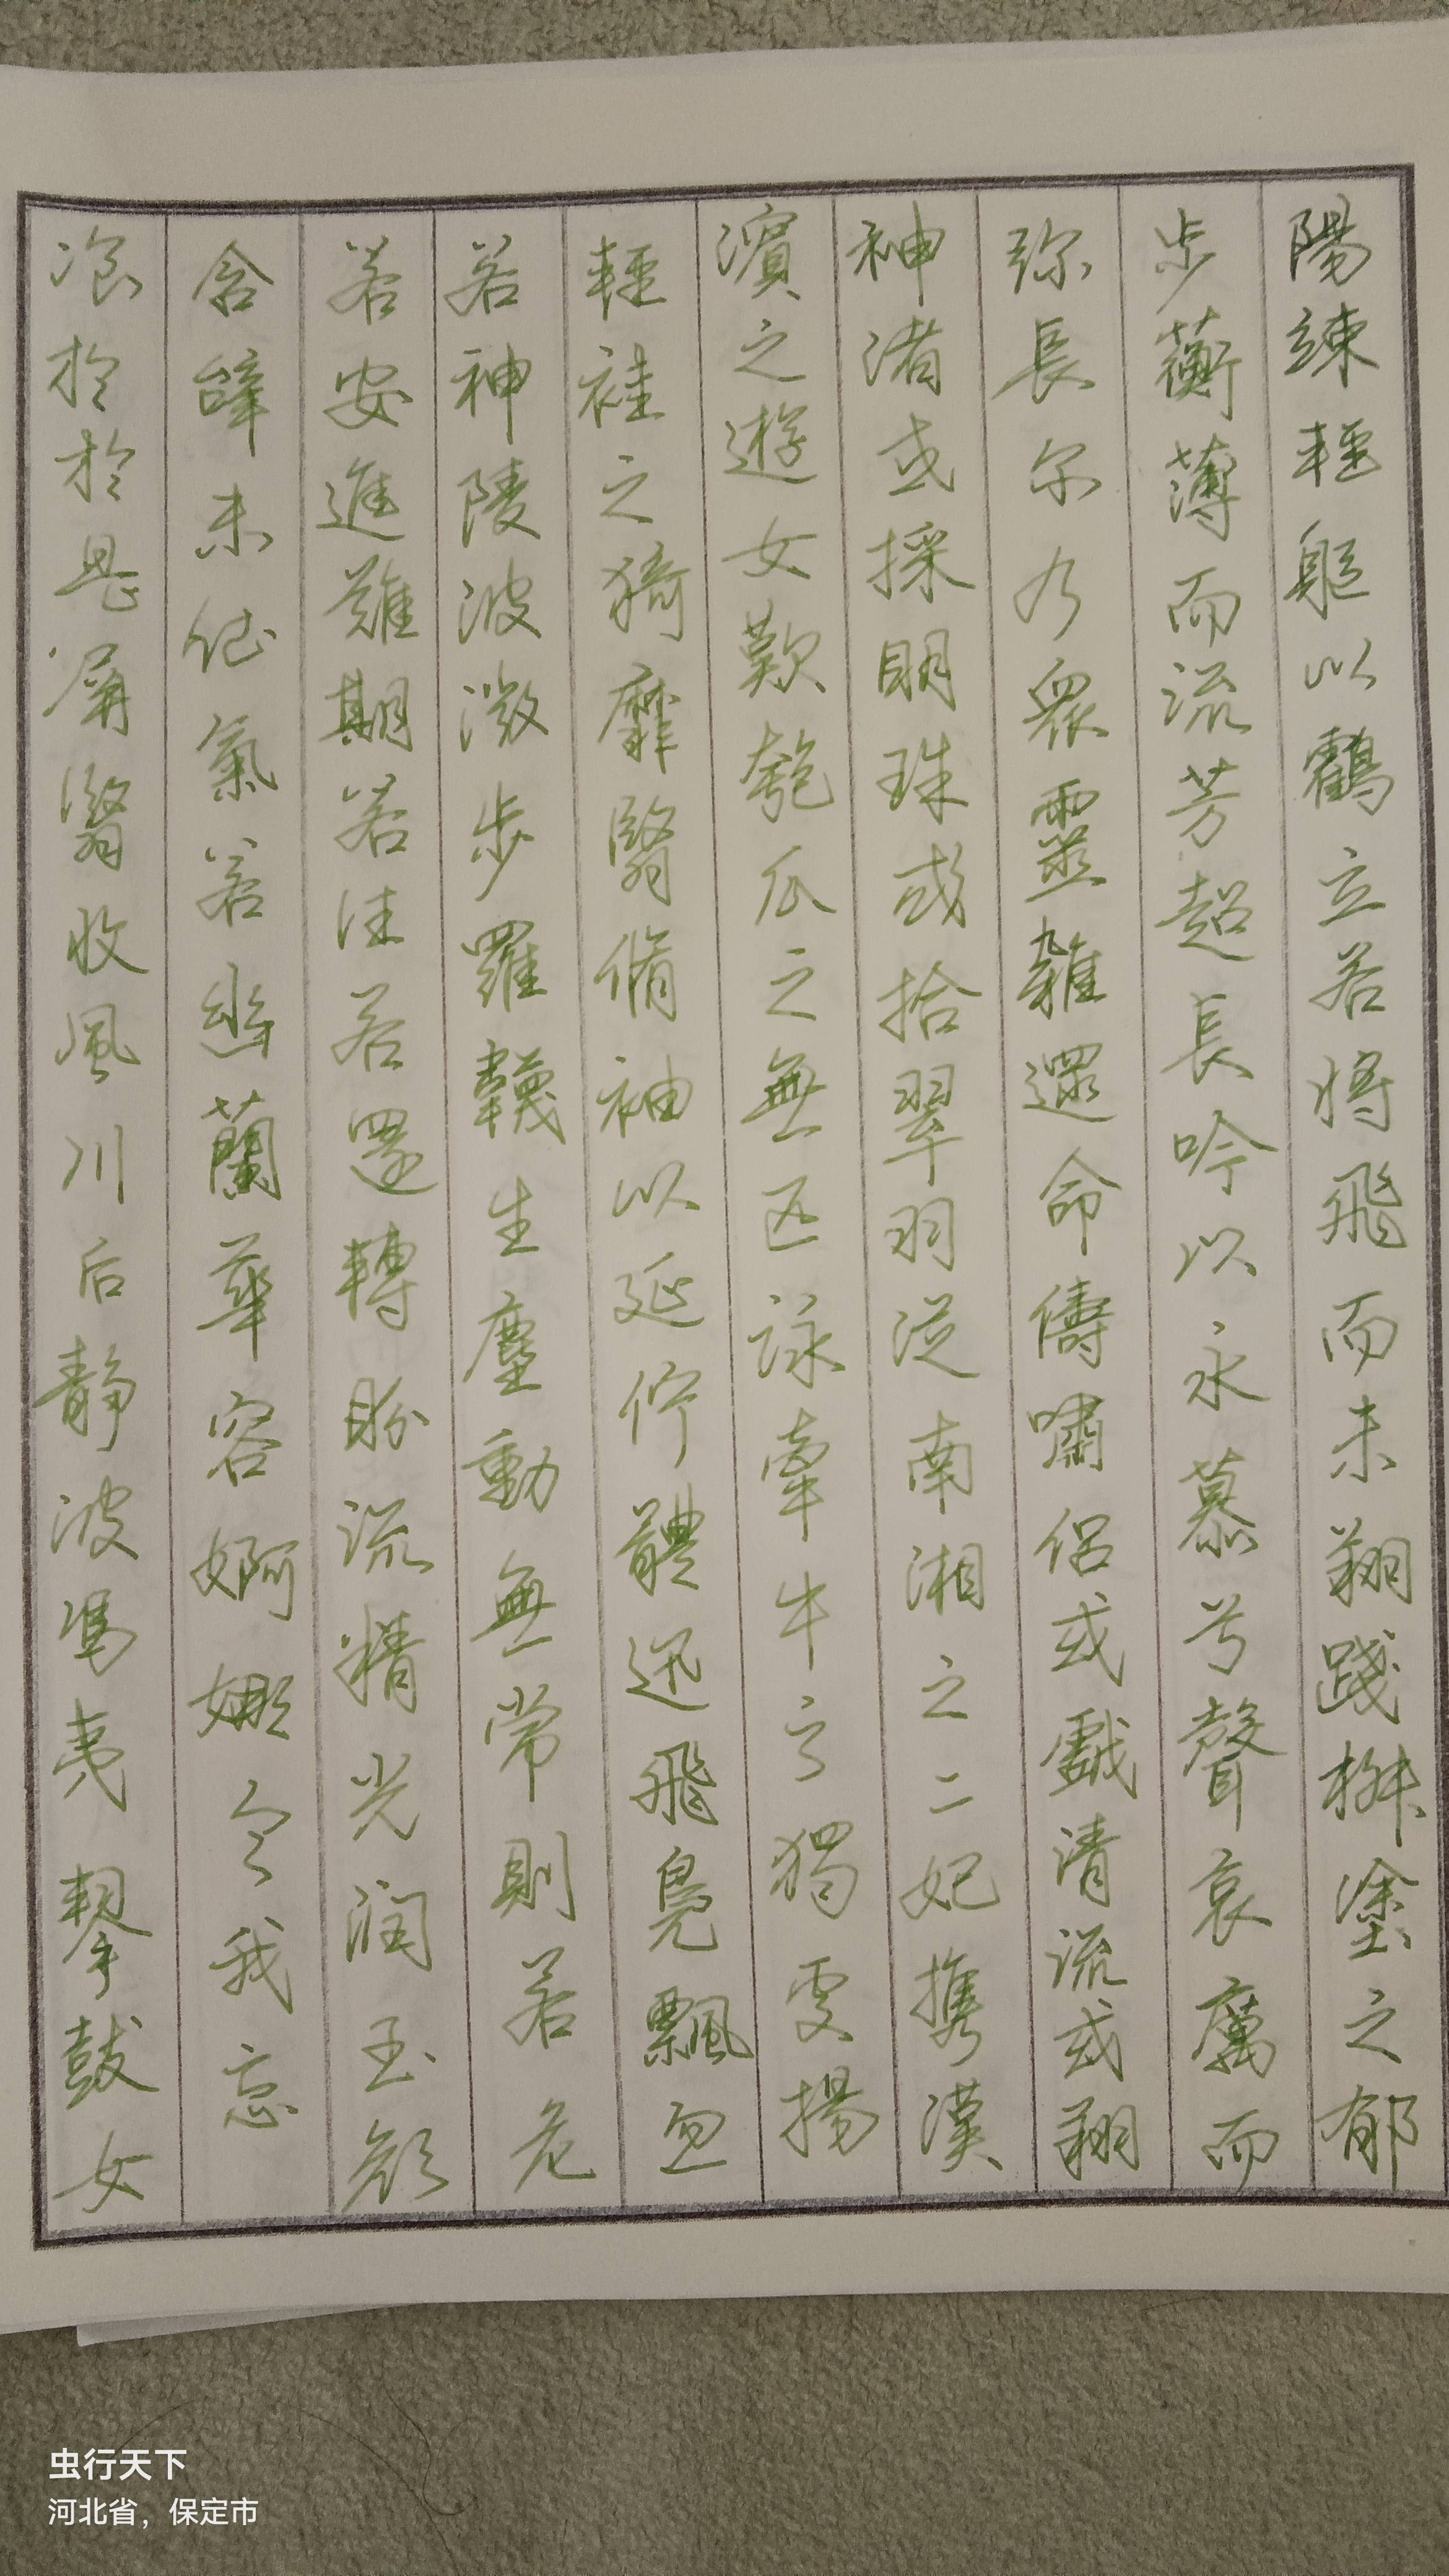 陽竦輕軀以鶴立若将飛而未翔踐椒塗之郁
步蘅薄而流芳超長吟以永慕兮聲哀厲而
弥長尔乃衆靈雜遝命儔嘯侶或戲清流或翔
神渚或採明珠或拾翠羽從南湘之二妃携漢
濱之遊女歎匏瓜之無匹詠牽牛之獨處揚
輕袿之猗靡翳脩袖以延佇體迅飛鳧飄忽
若神陵波微步羅韈生塵動無常則若危
若安進難期若往若還轉眄流精光润玉顔
含辞未吐氣若幽蘭華容婀娜令我忘
飡於於是屏翳收風川后静波馮夷擊鼓女
虫行天下
河北省，保定市